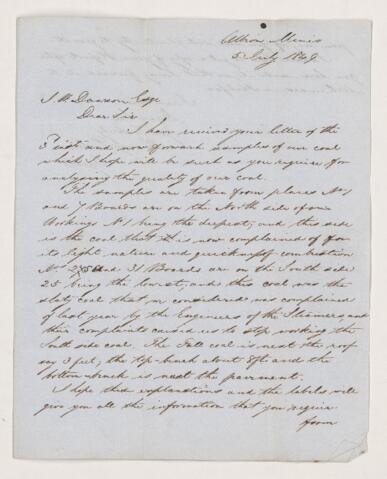 Albion Mines
5 July 1849
J. W. Dawson Esqr
Dear Sir
I have received your letter of the
3 inst and now forward samples of our coal
which I hope will be such as you require for
analysing the quality of our coal.
The samples are taken from places No 1
and 7 Boards are on the North side of our
Workings No 1 being the deepest, and this side
is the coal that is now complained of for
its light nature and quickness of combustion
No 25 and 31 Boards are on the South side
25 being the lowest, and this coal was the
slaty coal that was considered was complained
of last year by the Engineers of the Steamers, and
their complaints caused us to stop working the
South side coal. The Fall coal is next the roof
say 3 feet, the top bench about 8ft and the
bottom bench is next the pavement.
I hope this explanations and the labels will
give you all the information that you require
from